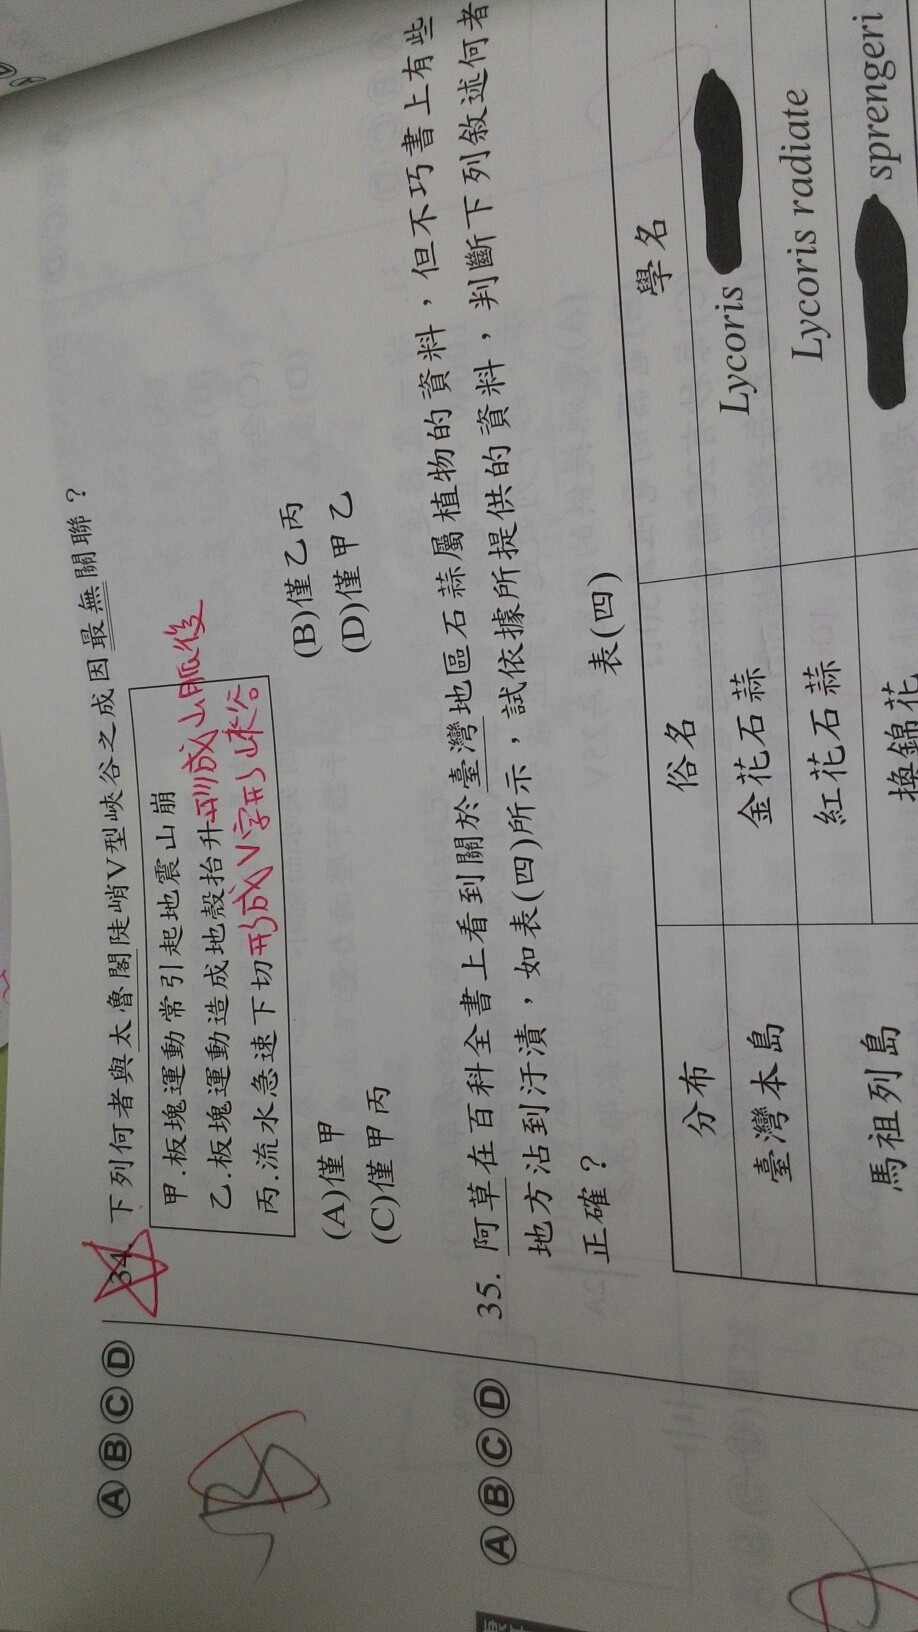 ⒶⒷⒸⒹ
34. 下列何者與太魯閣陡峭V型峽谷之成因最無關聯？
甲.板塊運動常引起地震山崩
乙.板塊運動造成地殼抬升形成山脈後
丙.流水急速下切形成V字形峽谷
(A)僅甲 (B)僅乙丙
(C)僅甲丙 (D)僅甲乙
B
ⒶⒷⒸⒹ
35. 阿草在百科全書上看到關於臺灣地區石蒜屬植物的資料，但不巧書上有些
地方沾到汙漬，如表(四)所示，試依據所提供的資料，判斷下列敘述何者
正確？
表(四)
分布 俗名 學名
臺灣本島 金花石蒜 Lycoris
紅花石蒜 Lycoris radiate
馬祖列島
換錦花 sprengeri